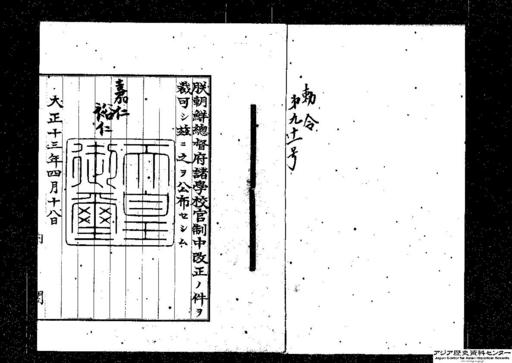 勅令
第九十一号
朕朝鮮總督府諸學校官制中改正ノ件ヲ
裁可シ茲ニ之ヲ公布セシム
嘉仁
裕仁
天皇
御璽
大正十三年四月十八日
内閣
アジア歴史資料センター
Japan Center for Asian Historical Records